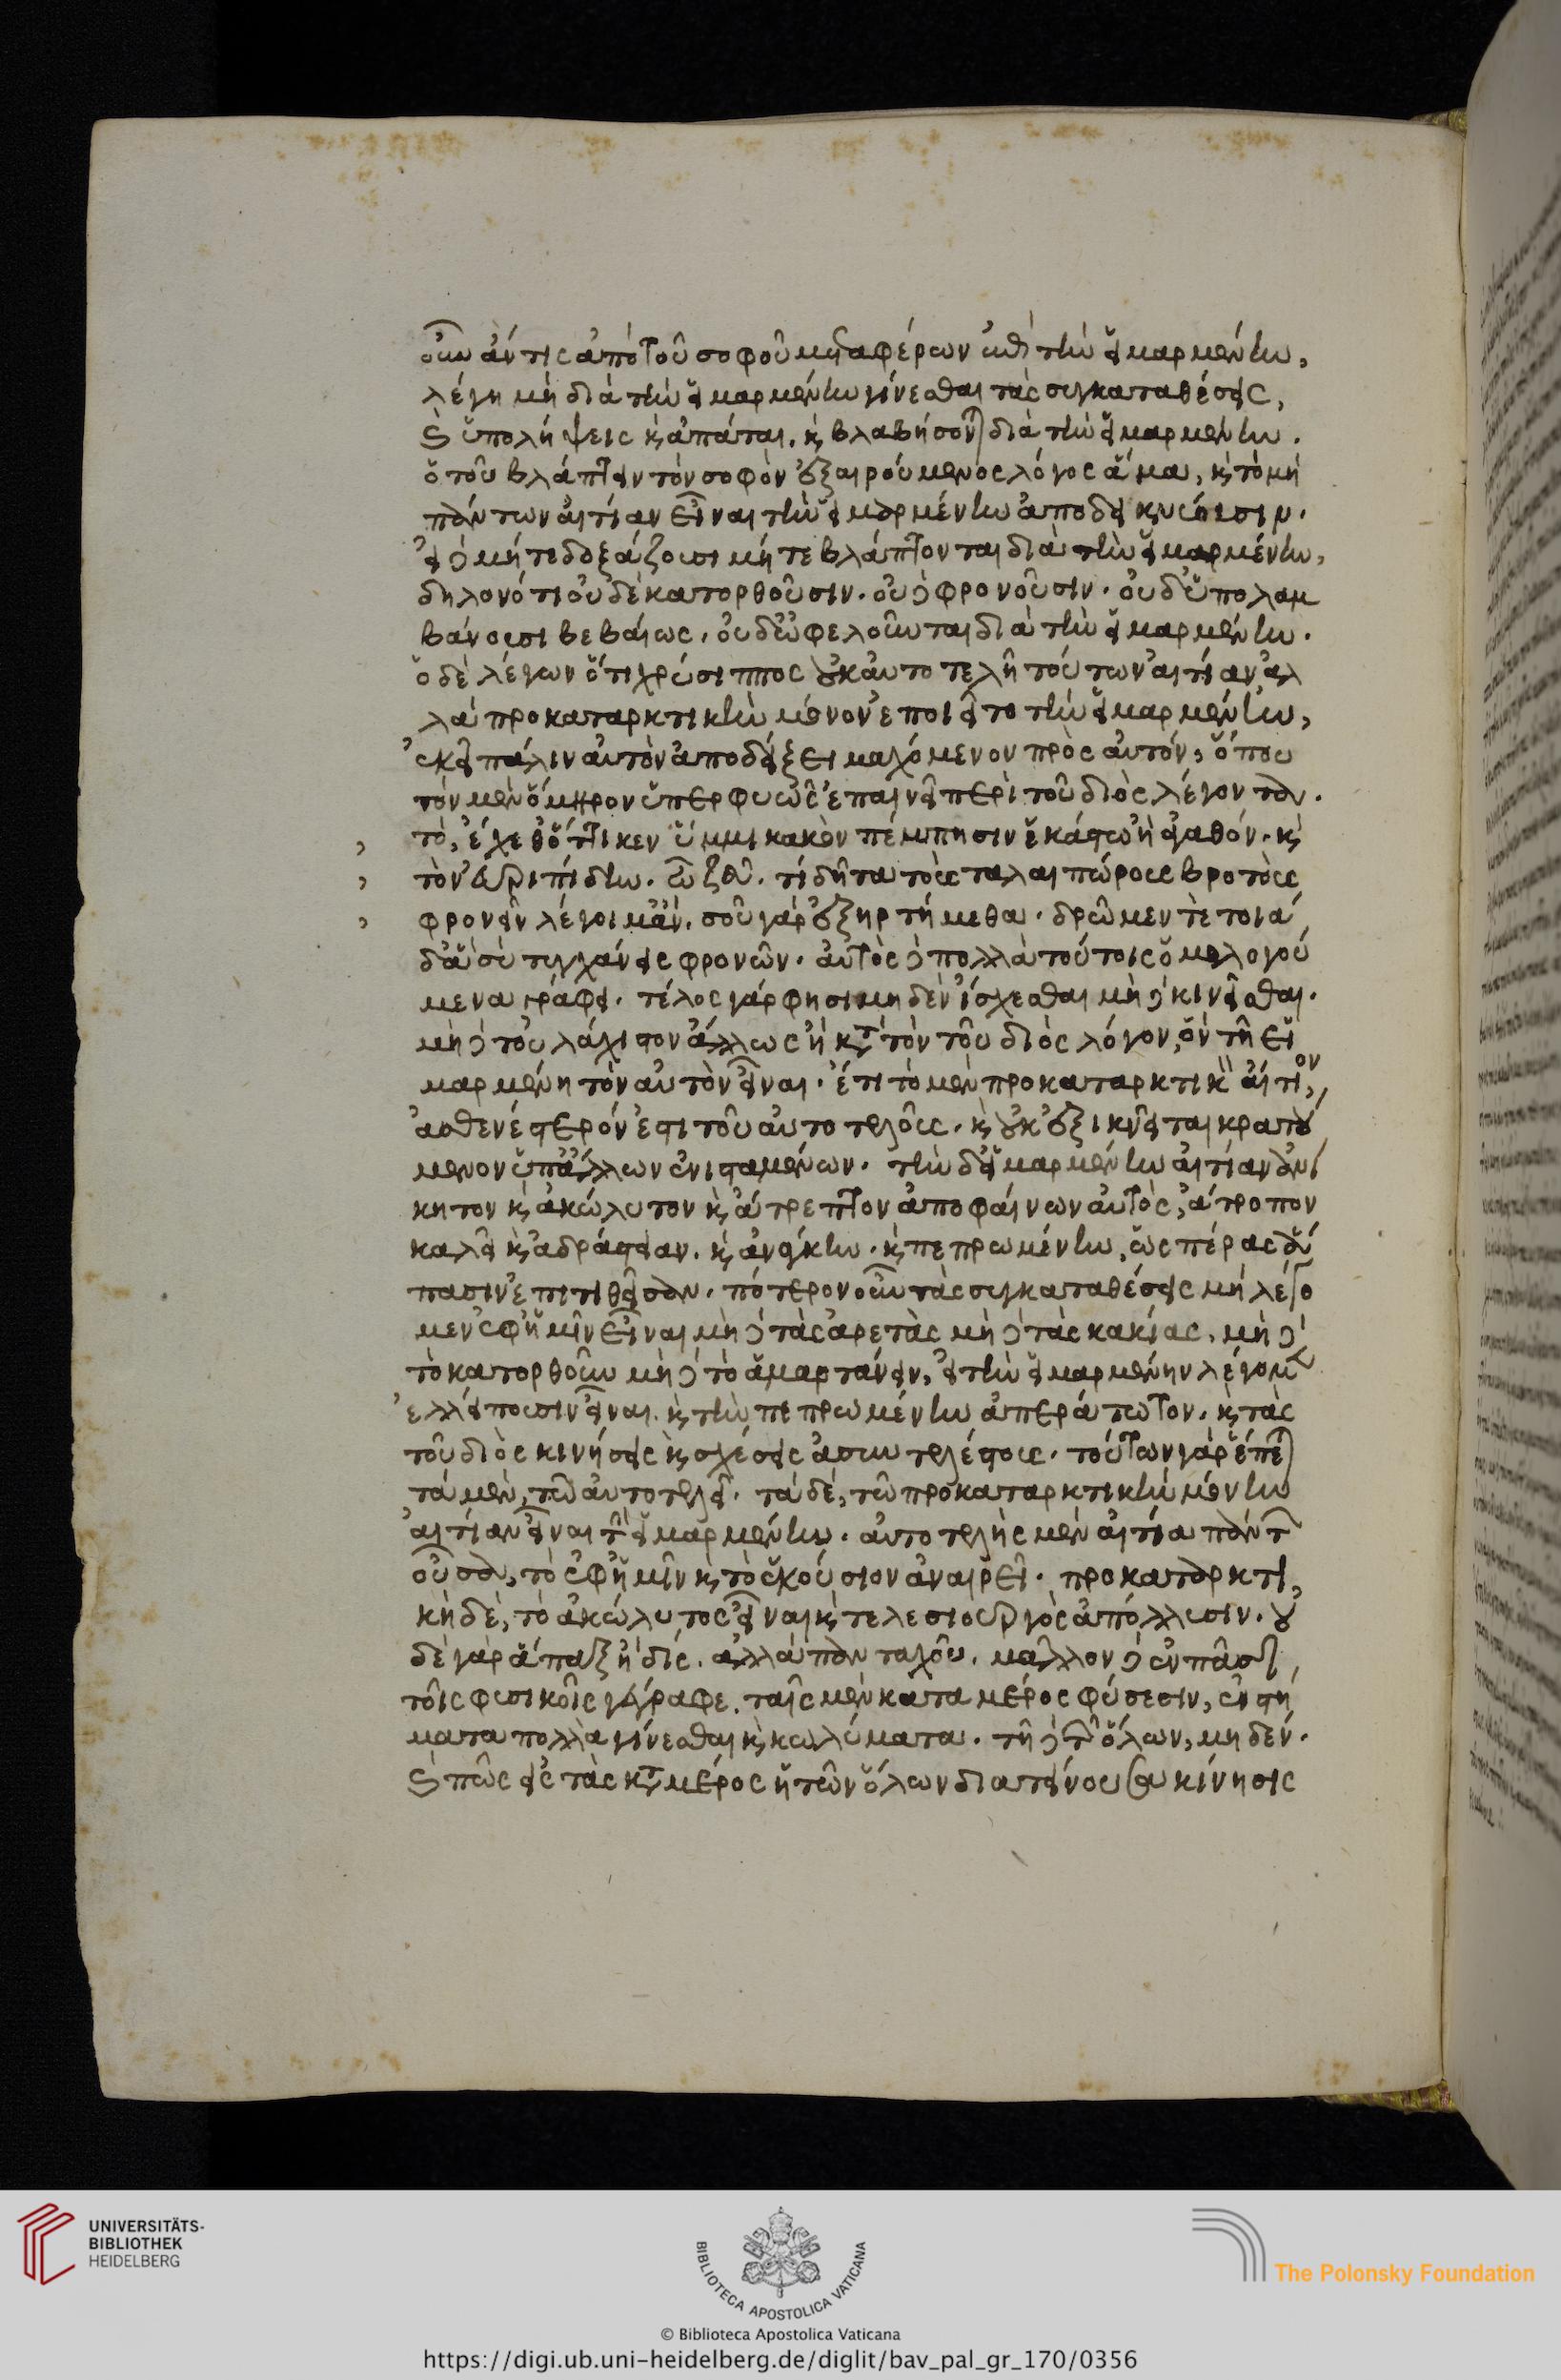 οὖν ἄν τις ἀπὸ τοῦ σοφοῦ μεταφέρων ἐπὶ τὴν εἱμαρμένην,
λέγη μὴ διὰ τὴν εἱμαρμένην γίνεσθαι τὰς συγκαταθέσεις,
καὶ ὑπολήψεις καὶ ἀπάται. καὶ βλαβήσονται διὰ τὴν εἱμαρμένην.
ὁ τοῦ βλάπτειν τὸν σοφὸν ἐξαιρούμενος λόγος ἅμα, καὶ τὸ μὴ
πάντων αἰτίαν εἶναι τὴν εἱμαρμένην ἀποδείκνυσιν.
εἰ δὲ μήτε δοξάζουσι μήτε βλάπτονται διὰ τὴν εἱμαρμένην,
δηλονότι οὐδὲ κατορθοῦσιν. οὐδὲ φρονοῦσιν. οὐδ' ὑπολαμ
βάνουσι βεβαίως. οὐδ' ὠφελοῦνται διὰ τὴν εἱμαρμένην.
ὁ δὲ λέγων ὅτι χρύσιππος οὐκ αὐτοτελῆ τούτων αἰτίαν ἀλ
λὰ προκαταρκτικὴν μόνον ἐποιεῖτο τὴν εἱμαρμένην,
ἐκεῖ πάλιν αὐτὸν ἀποδείξει μαχόμενον πρὸς αὐτόν, ὅπου
τὸν μὲν ὅμηρον ὑπερφυῶς ἐπαινεῖ περὶ τοῦ διὸς λέγοντα.
τὸ, ἔχεσθ' ὅττι κεν ὔμμι κακὸν πέμπησιν ἑκάστω ἢ ἀγαθόν. καὶ
τὸν εὐριπίδην. ὦ ζεῦ. τί δῆτα τοὺς ταλαιπώρους βροτοὺς
φρονεῖν λέγοιμ' ἄν. σοῦ γὰρ ἐξηρτήμεθα. δρῶμέν τε τοιά
δ' ἃ σὺ τυγχάνεις φρονῶν. αὐτὸς δὲ πολλὰ τούτοις ὁμολογού
μενα γράφει. τέλος γάρ φησι μηδὲν ἴσχεσθαι μὴ δὲ κινεῖσθαι.
μὴ δὲ τοὐλάχιστον ἄλλως ἢ κατὰ τὸν τοῦ διὸς λόγον, ὃν τῆ εἱ
μαρμένη τὸν αὐτὸν εἶναι. ἔτι τὸ μὲν προκαταρκτικὸν αἴτιον,
ἀσθενέστερόν ἐστι τοῦ αὐτοτελοῦς. καὶ οὐκ ἐξικνεῖται κρατού
μενον ὑπ' ἄλλων ἐνισταμένων. τὴν δ' εἱμαρμένην αἰτίαν ἀνί
κητον καὶ ἀκώλυτον καὶ ἄτρεπτον ἀποφαίνων αὐτὸς, ἄτροπον
καλεῖ καὶ ἀδράστειαν. καὶ ἀνάγκην. καὶ πεπρωμένην, ὡς πέρας ἅ
πασιν ἐπιτιθεῖσαν. πότερον οὖν τὰς συγκαταθέσεις μὴ λέγο
μεν ἐφ' ἡμῖν εἶναι μὴ δὲ τὰς ἀρετὰς μὴ δὲ τὰς κακίας, μὴ δὲ
τὸ κατορθοῦν μὴ δὲ τὸ ἁμαρτάνειν, ἢ τὴν εἱμαρμένην λέγομεν
ἐλλείπουσιν εἶναι. καὶ τὴν πεπρωμένην ἀπεράτωτον. καὶ τὰς
τοῦ διὸς κινήσεις καὶ σχέσεις ἀσυντελέστους. τούτων γὰρ ἕπεται
τὰ μὲν, τῶ αὐτοτελῆ. τὰ δέ, τῶ προκαταρκτικὴν μόνην
αἰτίαν εἶναι τὴν εἱμαρμένην. αὐτοτελὴς μὲν αἰτία πάντων
οὖσα, τὸ ἐφ' ἡμῖν καὶ τὸ ἑκούσιον ἀναιρεῖ. προκαταρκτι
κὴ δὲ, τὸ ἀκώλυτος εἶναι καὶ τελεσιουργὸς ἀπόλλυσιν. οὐ
δὲ γὰρ ἅπαξ ἢ δίς. ἀλλὰ πανταχοῦ. μᾶλλον δὲ ἐν πᾶσι
τοῖς φυσικοῖς γέγραφε. ταῖς μὲν κατὰ μέρος φύσεσιν, ἐνστή
ματα πολλὰ γίνεσθαι καὶ κωλύματα. τῆ δὲ τῶν ὅλων, μηδέν.
καὶ πῶς εἰς τὰς κατὰ μέρος ἡ τῶν ὅλων διατείνουσα κίνησις
UNIVERSITÄTS-
BIBLIOTHEK
HEIDELBERG
BIBLIOTECA APOSTOLICA VATICANA
The Polonsky Foundation
© Biblioteca Apostolica Vaticana
https://digi.ub.uni-heidelberg.de/diglit/bav_pal_gr_170/0356